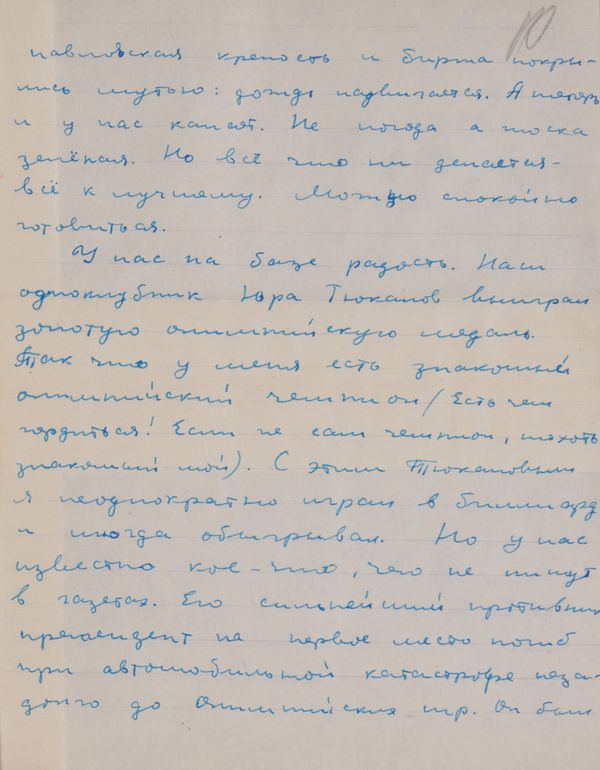 10
павловская крепость и биржа покры-
лись мутью: дождь надвигается. А теперь
и у нас капает. Не погода а тоска
зелёная. Но всё что ни делается-
всё к лучшему. Можно спокойно
готовиться.
У нас на базе радость. Наш
одноклубник Юра Тюкалов выиграл
золотую олимпийскую медаль.
Так что у меня есть знакомый
олимпийский чемпион (Есть чем
гордиться! Если не сам чемпион, то хоть
знакомый мой). С этим Тюкаловым
я неоднократно играл в биллиард
и иногда обыгрывал. Но у нас
известно кое-что, чего не пишут
в газетах. Его сильнейший противник
претендент на первое место погиб
при автомобильной катастрофе неза-
долго до Олимпийских игр. Он был